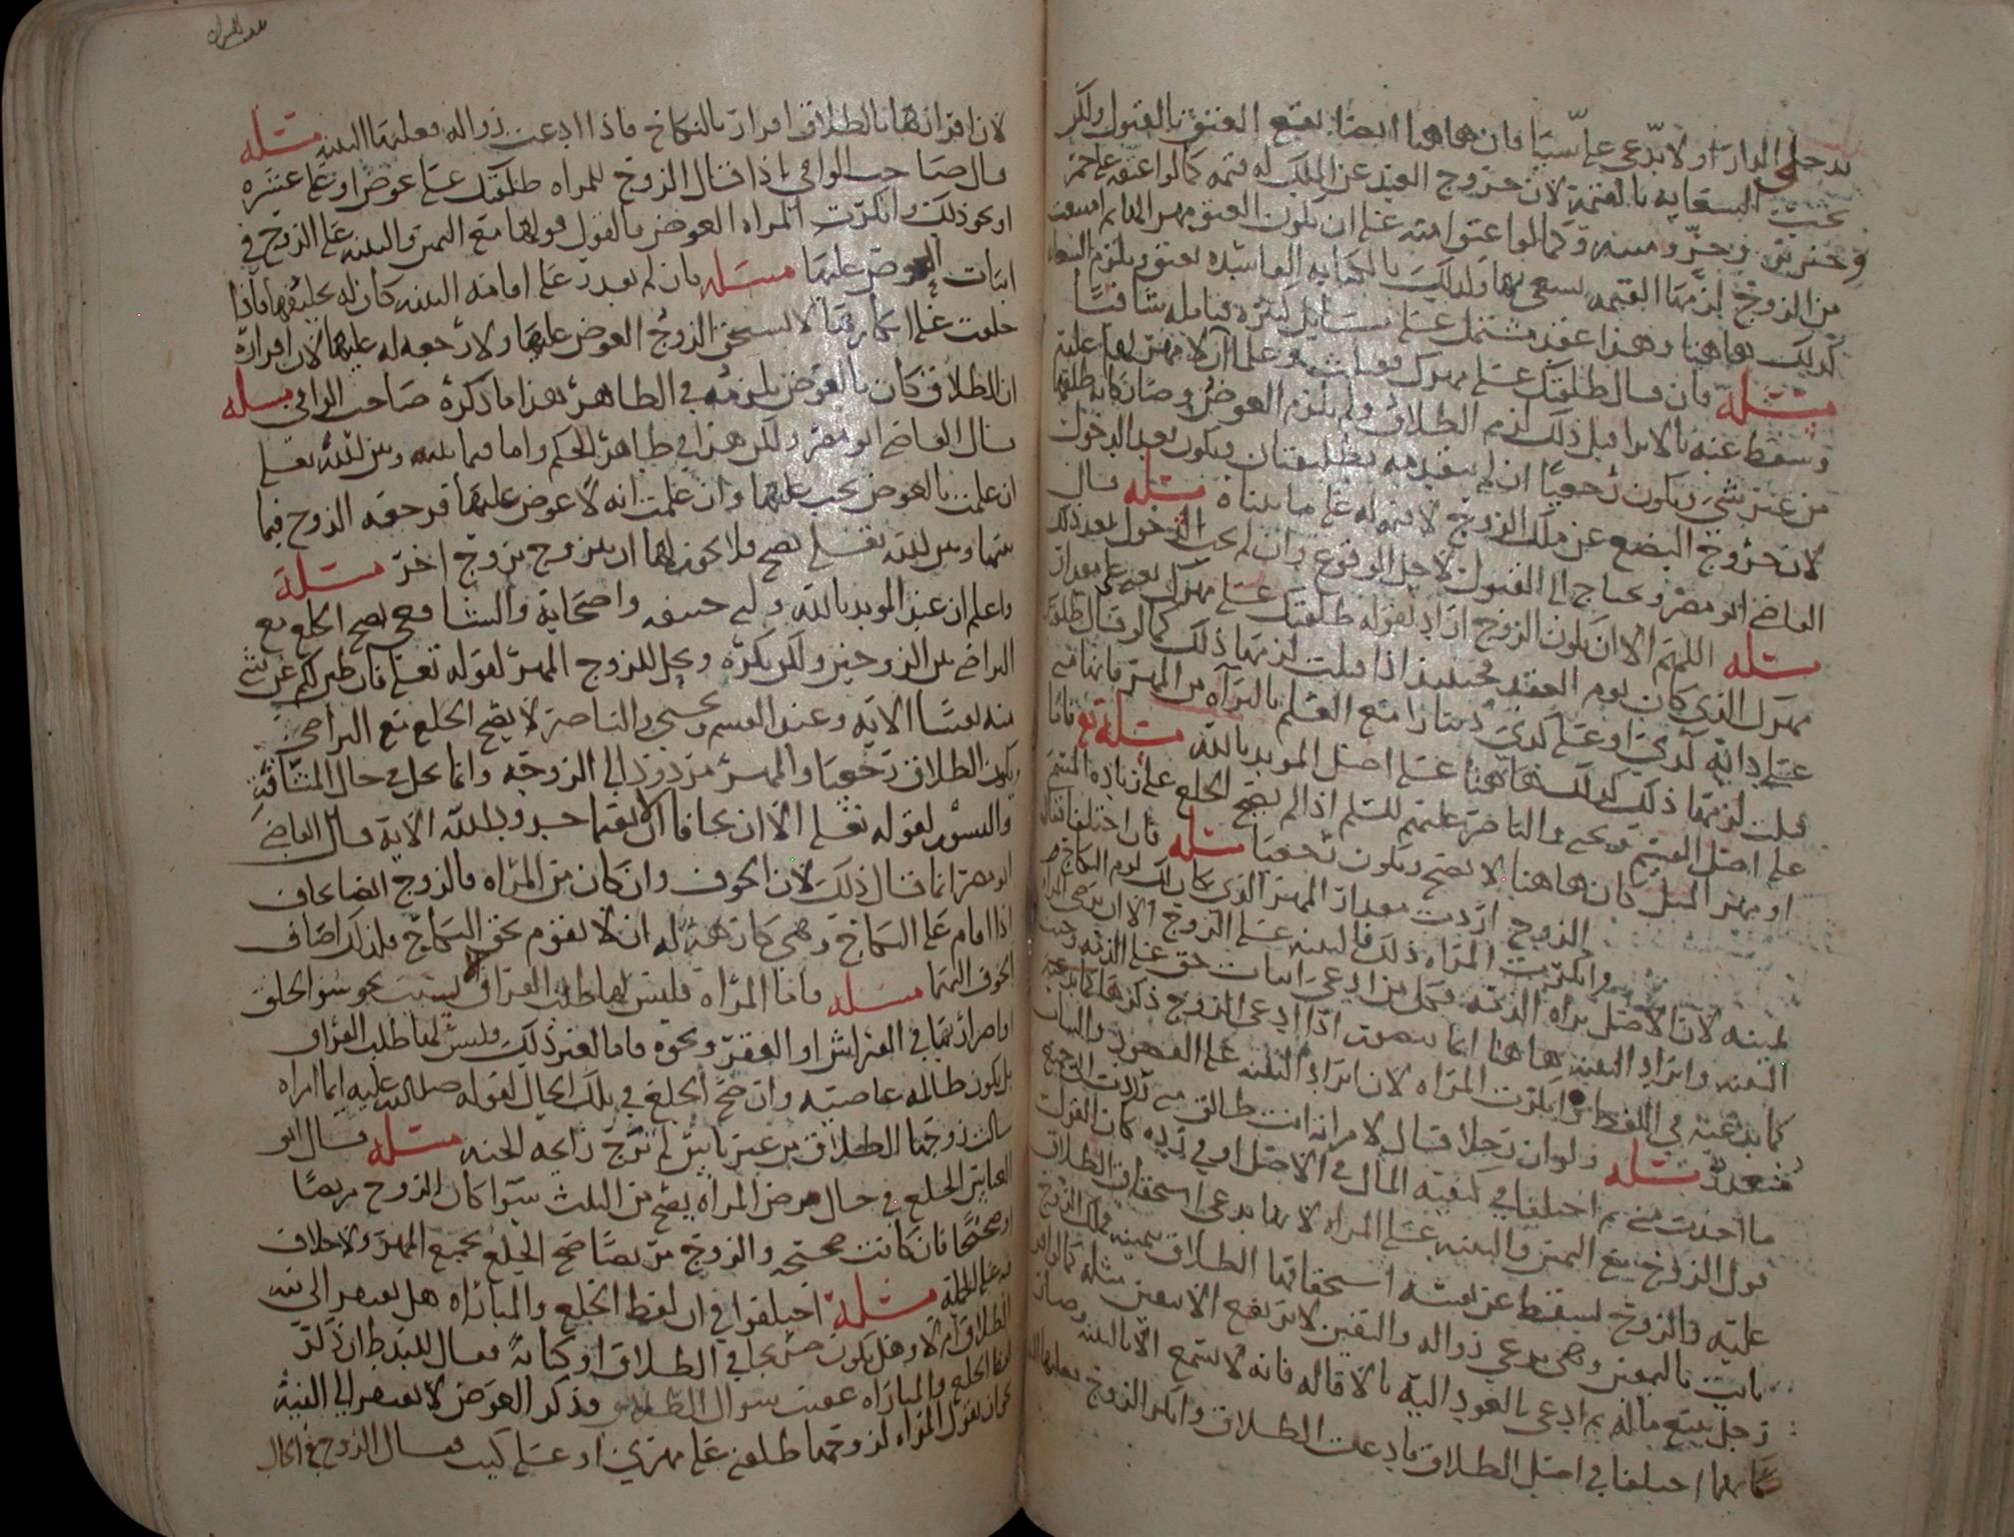 يدخلي الدار او لا تدعي علي شيا فان هاهنا ايضا يقع العتق بالقبول ولكن
تجب السعايه بالقيمة لان خروج العبد عن الملك له قيمه كما لو اعتقه على خمر
وخنزير وحر وميته وكما لو اعتق امته على ان يكون العتق مهرها ثم امتنعت
من الزوج لزمها القيمه تسعى بها وكذلك بالكتابه الفاسده يعتق ويلزم السعا
كذلك هاهنا وهذا عقد مشتمل على مسايل كثيره فتامله شافيا
مسئله فان قال طلقتك على مهرك فقبلت وعلما ان لا مهر لها عليه
وسقط عنه بالابرا قبل ذلك لزم الطلاق ولم يلزم العوض وصار كانه طلقها
من غير شي ويكون رجعيا ان لم يتقدمه تطليقتان ويكون بعد الدخول
لان خروج البضع عن ملك الزوج لا قيمه له على ما بيناه مسئله قال
القاضي ابو مضر ويحتاج الى القبول لاجل الوقوع وان لم يجب الدخول بعد ذلك
مسئله اللهم الا ان يكون الزوج اراد بقوله طلقتك على مهرك يعني على مقدار
مهرك الذي كان يوم العقد فحينيذ اذا قبلت لزمها ذلك كما لو قال طلقتك
على دابه كذي او على كذي دينارا مع العلم بالبراه من المهر فانها متى
قبلت لزمها ذلك كذلك هاهنا على اصل المويد بالله مسئله فاما
على اصل القسم ويحيى والناصر عليهم السلم اذا لم يصح الخلع على زياده المهر
او مهر المثل فان هاهنا لا يصح ويكون رجعيا مسئله فان اختلفا فقال
الزوج اردت مقدار المهر الذي كان لك يوم النكاح
وانكرت المراه ذلك فالبينه على الزوج الا ان
لمينه لان الاصل براه الذمه فكل من ادعى اثبات حق على الذمه وجبت
البينه وايراد البينه هاهنا انما يتصور اذا ادعى الزوج ذكرهما
كما يدعيه في اللفظ وانكرت المراه لان ايراد البينه على القصود والنيات
متعذر مسئله ولو ان رجلا قال لامراته انت طالق
ما اخذت مني ثم اختلفا في كيفيه المال في الاصل او في رده كان القول
قول الزوج مع اليمين والبينه على المراه لانها تدعي استحقاق الطلاق
عليه والزوج يسقط عن نفسه استحقاقها الطلاق بيمينه فملك الزوج
ثابت باليقين وهي تدعي زواله واليقين لا يرتفع الا بيقين مثله
رجل يبيع ماله ثم ادعى بالعود اليه بالاقاله فانه لا يسمع الا بالبينه وصار
كانهما اختلفا في اصل الطلاق فادعت الطلاق وانكر الزوج فعليها
لان اقرارها بالطلاق اقرار بالنكاح فاذا ادعت زواله فعليها البينه مسئله
قال صاحب الوافي اذا قال الزوج للمراه طلقتك على عوض او على عشره
او نحو ذلك وانكرت المراه العوض فالقول قولها مع اليمين والبينه على الزوج في
اثبات العوض عليها مسئله فان لم يقدر على اقامه البينه كان له تحليفها فاذا
حلفت على انكارها لا يستحق الزوج العوض عليها ولا رجعه له عليها لان اقراره
ان الطلاق كان بالعوض يلزمه في الظاهر هذا ما ذكره صاحب الوافي مسئله
قال القاضي ابو مضر ولكن هذا في ظاهر الحكم واما فيما بينه وبين الله تعلى
ان علمت بالعوض يجب عليها وان علمت انه لا عوض عليها فرجعه الزوج فيما
بينها وبين الله تعلى تصح ولا يجوز لها ان تتزوج بزوج اخر مسئلة
واعلم ان عند المويد بالله وابي حنيفه واصحابه والشافعي يصح الخلع مع
التراضي من الزوجين ولكن يكره ويحل للزوج المهر لقوله تعلى فان طبن لكم عن شي
منه نفسا الايه وعند القسم ويحيى والناصر لا يصح الخلع مع التراضي
ويكون الطلاق رجعيا والمهر مردود الى الزوجه وانما يحل في حال المشاقه
والنشوز لقوله تعلى الا ان يخافا ان لا يقيما حدود الله الاية قال القاضي
ابو مضر انما قال ذلك لان الخوف وان كان من المراه فالزوج ايضا يخاف
اذا اقام على النكاح وهي كارهة له ان لا يقوم بحق النكاح فلذلك اضاف
الخوف اليهما مسئله فاما المراه فليس لها طلب الفراق لسبب نحو سو الخلق
او اضرار بها في الفراش او الفقر ونحوه فاما لغير ذلك فليس لها طلب الفراق
بل تكون ظالمه عاصيه وان صح الخلع في تلك الحال لقوله صلى الله عليه ايما امراه
سالت زوجها الطلاق من غير باس لم ترح رايحه الجنه مسئله قال ابو
العباس الخلع في حال مرض المراه يصح من الثلث سوا كان الزوج مريضا
او صحيحا فان كانت صحيحه والزوج مريضا صح الخلع بجميع المهر ولا خلاف
فيه على الجملة مسئلة اختلفوا في ان لفظ الخلع والمباراه هل يفتقر الى نيه
الطلاق ام لا وهل يكون صريحا في الطلاق او كناية فقال للتفريط ان ذكر
لفظ الخلع والمباراه عقيب سوال الطلاق وذكر العوض لا يفتقر الى النية
نحو ان تقول المراه لزوجها طلقني على مهري او على كيت فقال الزوج في الحال